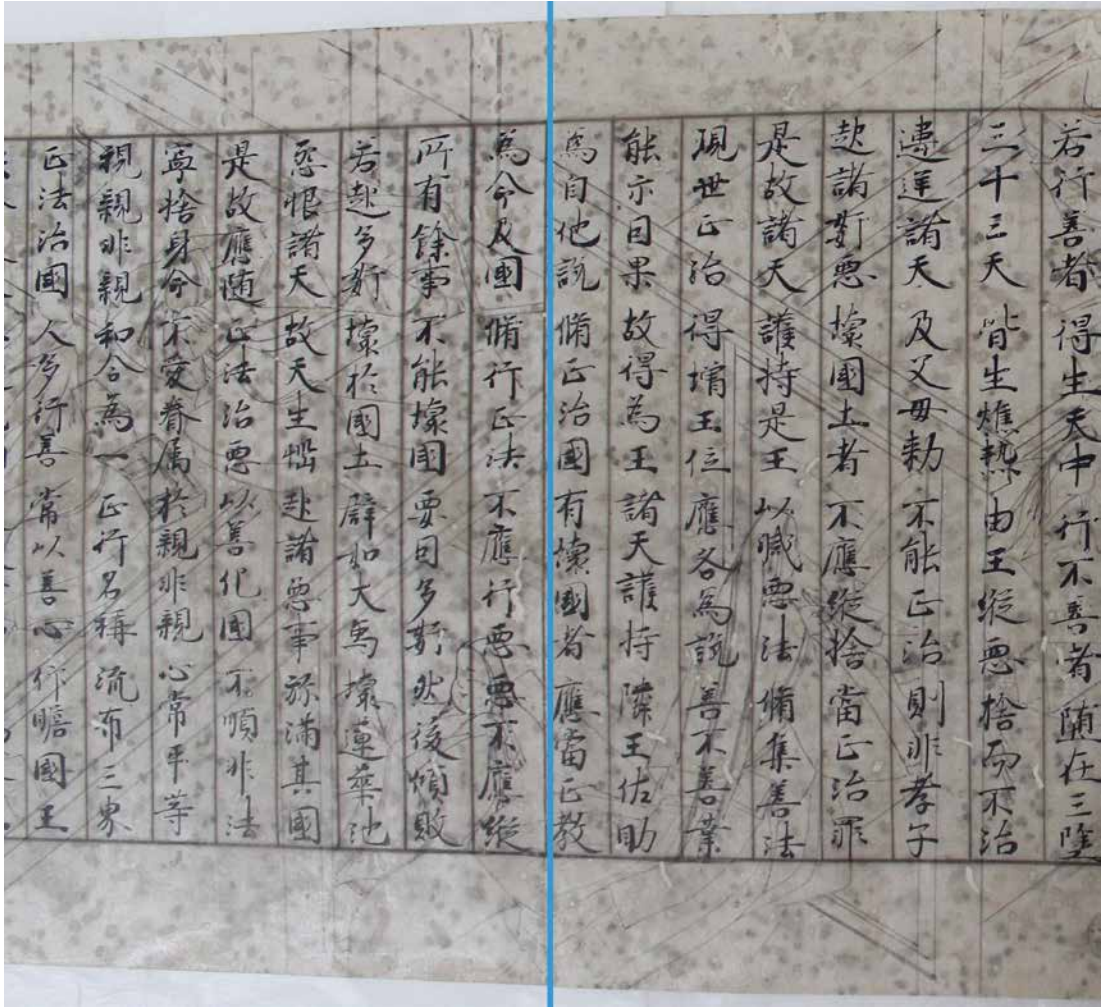 若行善者 得生天中 行不善者 随在三塗
三十三天 皆生燋熱 由王縱惡 捨而不治
違逆諸天 及父母勑 不能正治 則非孝子
起諸姧惡 壞國土者 不應縱捨 當正治罪
是故諸天 護持是王 以滅惡法 脩集善法
現世正治 得增王位 應各為說 善不善業
能示因果 故得為王 諸天護持 隣王佐助
為自他說 脩正治國 有壞國者 應當正教
為命及國 脩行正法 不應行惡 惡不應縱
所有餘事 不能壞國 要因多姧 然後傾敗
若起多姧 壞於國土 譬如大象 壞蓮華池
怨恨諸天 故天生惱 起諸惡事 弥滿其國
是故應随 正法治惡 以善化國 不順非法
寧捨身命 不愛眷属 於親非親 心常平等
視親非親 和合為一 正行名稱 流布三界
正法治國 人多行善 常以善心 仰瞻國王